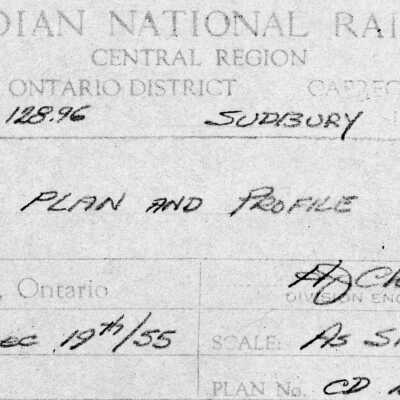 DIAN NATIONAL RAI
CENTRAL REGION
ONTARIO DISTRICT
128.96 SUDBURY
PLAN AND PROFILE
, Ontario
DIVISION ENG
ec 19th/55 SCALE: AS S
PLAN No. CD